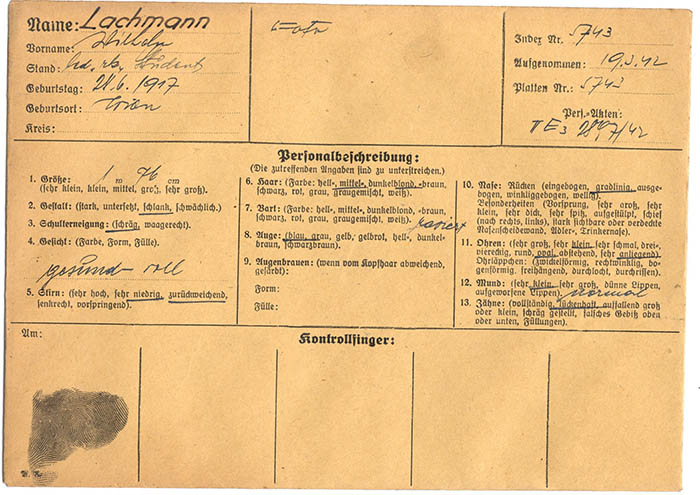 Name: Lachmann
Vorname: Wilhelm
Stand: Student
Geburtstag: 21.6.1917
Geburtsort: Wien
Kreis:
Foto
Index Nr. 5743
Aufgenommen: 19.3.42
Platten Nr.: 5743
Pers.-Akten:
II E3 /42
Personalbeschreibung:
(Die zutreffenden Angaben sind zu unterstreichen).
1. Größe: 1 m 76 cm
(sehr klein, klein, mittel, groß, sehr groß).
2. Gestalt: (stark, untersetzt, schlank, schwächlich).
3. Schulterneigung: (schräg, waagerecht).
4. Gesicht: (Farbe, Form, Fülle).
gesund - voll
5. Stirn: (sehr hoch, sehr niedrig, zurückweichend,
senkrecht, vorspringend).
6. Haar: (Farbe: hell-, mittel-, dunkelblond, -braun,
schwarz, rot, grau, graugemischt, weiß).
7. Bart: (Farbe: hell-, mittel-, dunkelblond, -braun,
schwarz, rot, grau, graugemischt, weiß). rasiert
8. Auge: (blau, grau, gelb, gelbrot, hell-, dunkel-
braun, schwarzbraun).
9. Augenbrauen: (wenn vom Kopfhaar abweichend,
gefärbt):
Form:
Fülle:
10. Nase: Rücken (eingebogen, gradlinig, ausge-
bogen, winkliggebogen, wellig).
Besonderheiten (Vorsprung, sehr groß, sehr
klein, sehr dick, sehr spitz, aufgestülpt, schief
(nach rechts, links), stark sichtbare oder verdeckte
Nasenscheidewand, Adler-, Trinkernase).
11. Ohren: (sehr groß, sehr klein, sehr schmal, drei-,
viereckig, rund, oval, abstehend, sehr anliegend).
Ohrläppchen: (zwickelförmig, rechtwinklig, bo-
genförmig, freihängend, durchlocht, durchrissen).
12. Mund: (sehr klein, sehr groß, dünne Lippen,
aufgeworfene Lippen), normal
13. Zähne: (vollständig, lückenhaft, auffallend groß
oder klein, schräg gestellt, falsches Gebiß oben
oder unten, Füllungen).
Am:
Kontrollfinger: